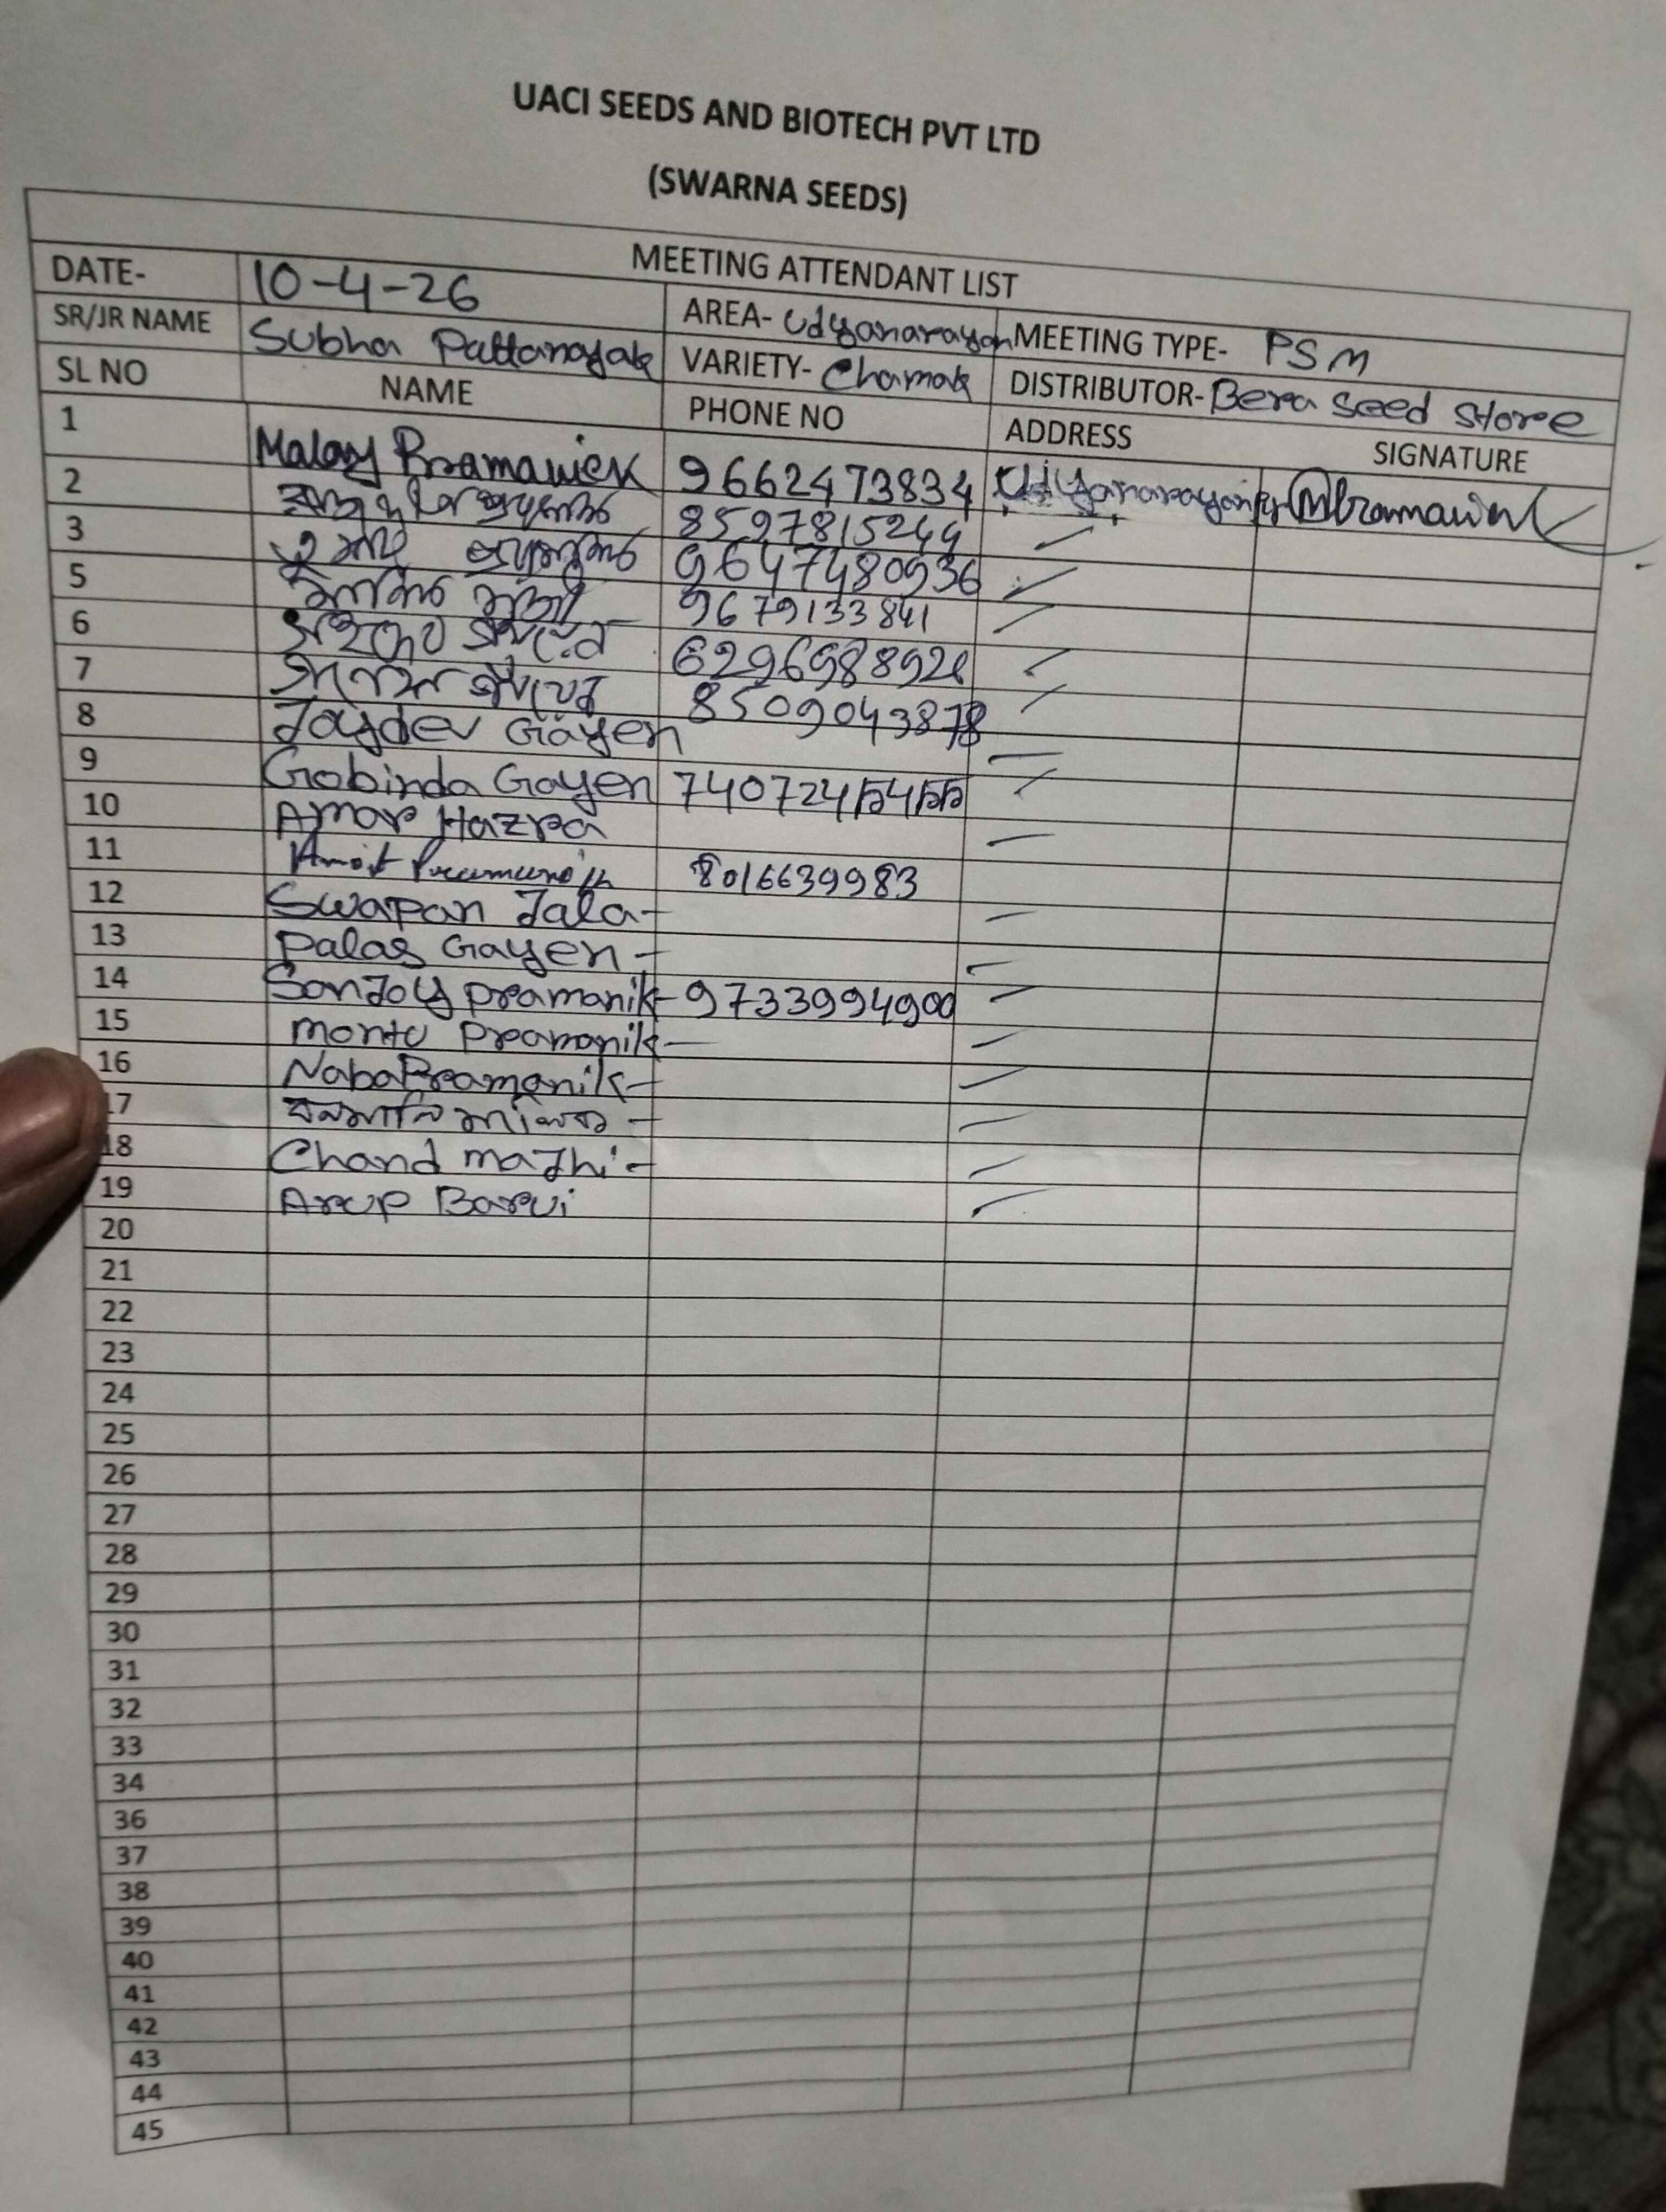 UACI SEEDS AND BIOTECH PVT LTD
(SWARNA SEEDS)
MEETING ATTENDANT LIST
DATE- 10-4-26 AREA- Udyanarayan MEETING TYPE- PSM
SR/JR NAME Subha Pattanayak VARIETY- Chamak DISTRIBUTOR- Bera Seed Store
SL NO NAME PHONE NO ADDRESS SIGNATURE
1 Malay Pramanick 9662473834
2 8597815244
3 9647480936
5 9679133841
6 6296988928
7 8509043878
8 Joydev Gayen
9 Gobinda Gayen
10 Amar Hazra
11 Amit 8016639983
12 Swapan Jala -
13 Palas Gayen -
14 Sanjoy pramanik - 9733994900
15 montu pramanik -
16 Naba Pramanik -
17 বনমালি -
18 Chand maJhi -
19 Arup Barui
20
21
22
23
24
25
26
27
28
29
30
31
32
33
34
36
37
38
39
40
41
42
43
44
45